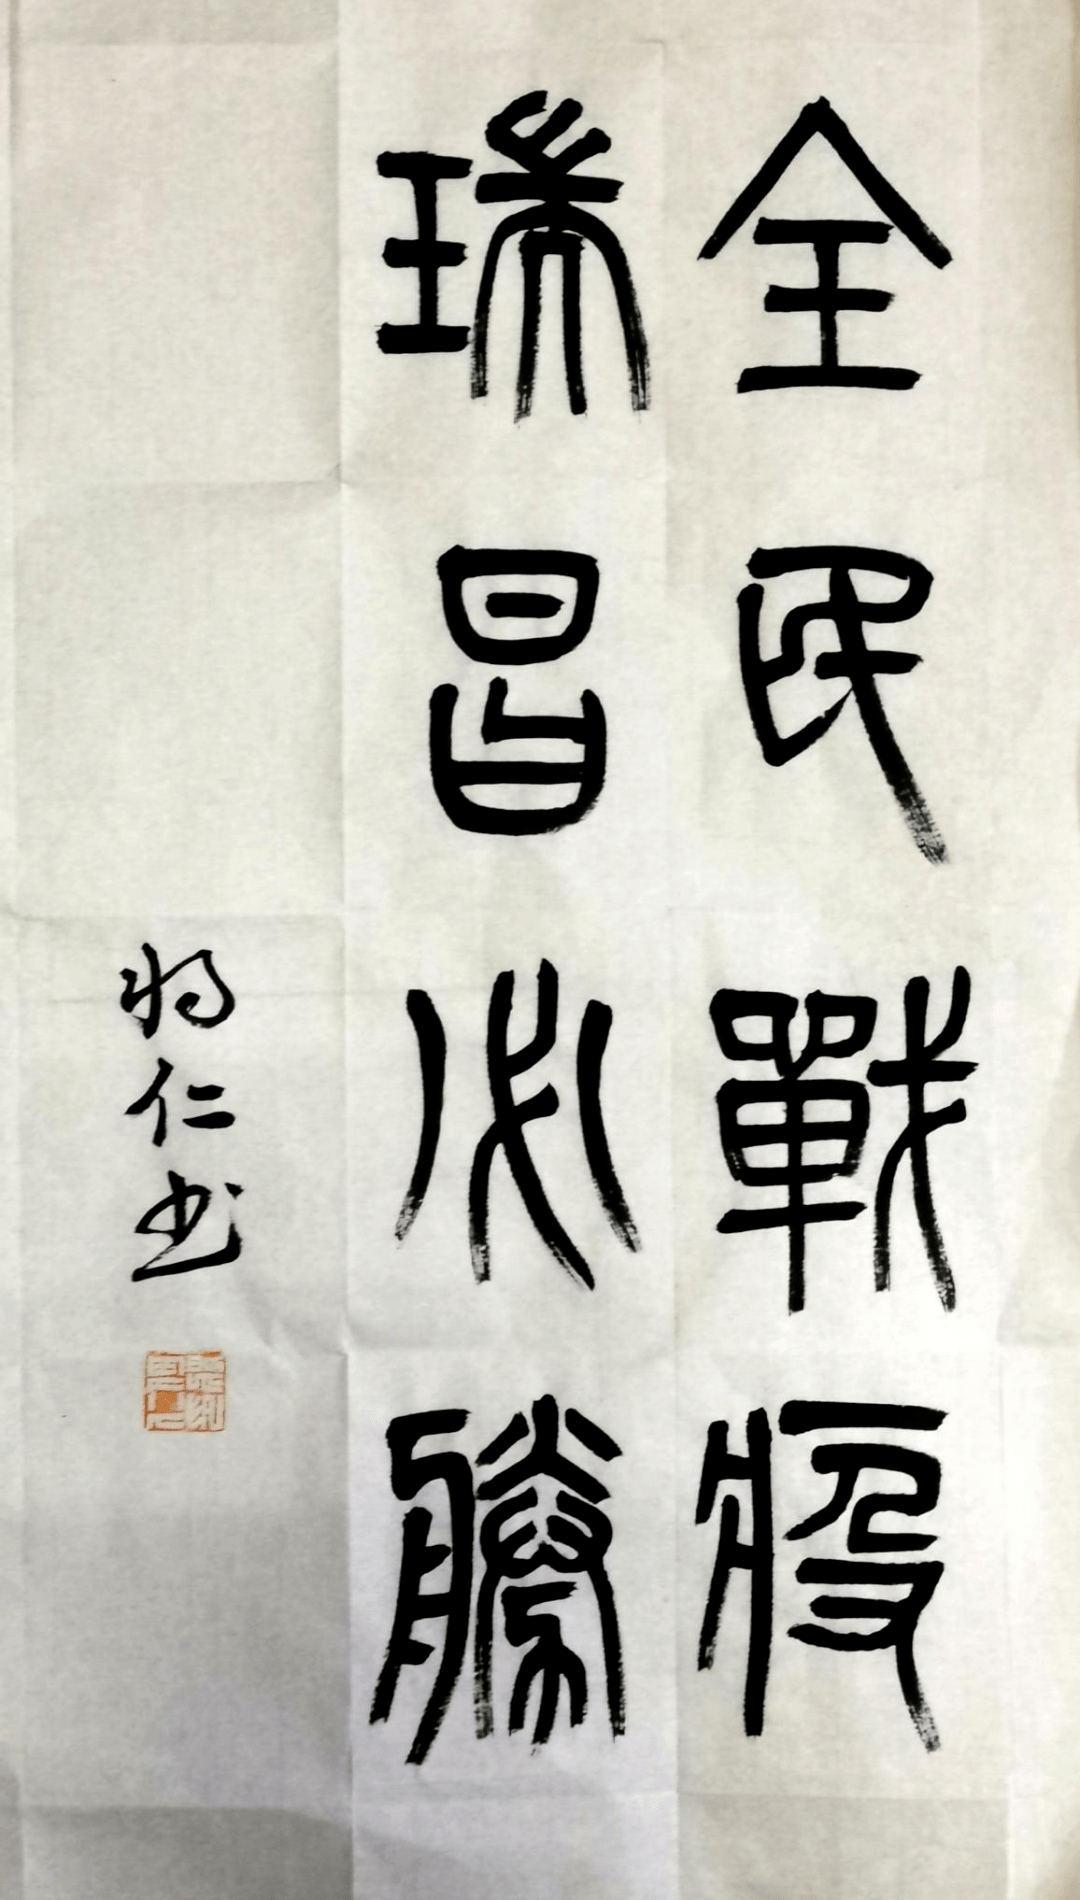 全民戰疫
瑞昌必勝
将仁书